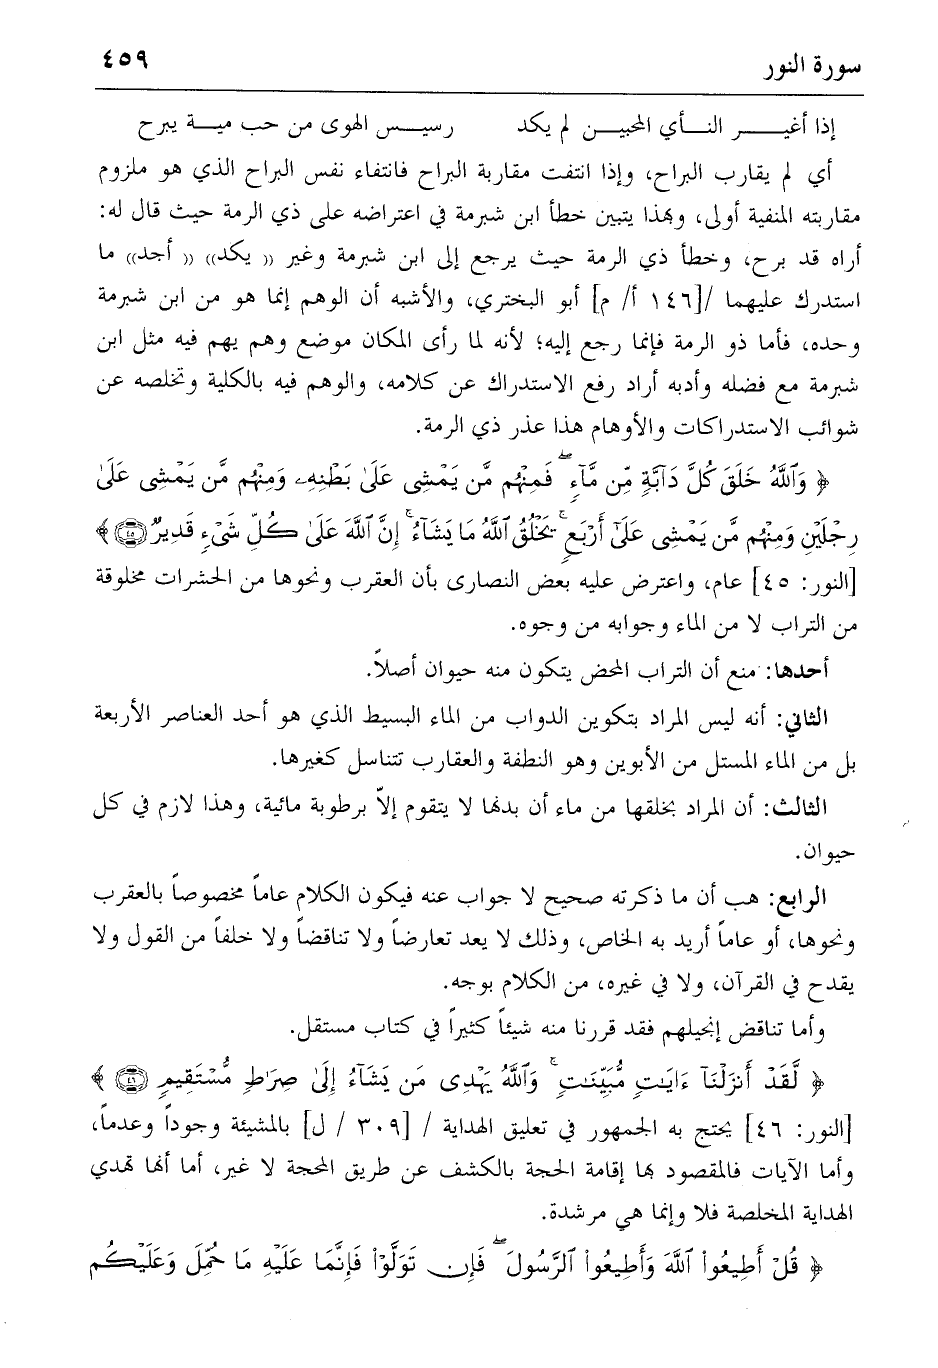 سورة النور ٤٥٩
إذا أغيــــر النــأي المحبيــن لم يكد رسيــس الهوى من حب ميــة يبرح
أي لم يقارب البراح، وإذا انتفت مقاربة البراح فانتفاء نفس البراح الذي هو ملزوم
مقاربته المنفية أولى، وبهذا يتبين خطأ ابن شبرمة في اعتراضه على ذي الرمة حيث قال له:
أراه قد برح، وخطأ ذي الرمة حيث يرجع إلى ابن شبرمة وغير (( يكد)) (( أجد)) ما
استدرك عليهما /[١٤٦ أ/ م] أبو البختري، والأشبه أن الوهم إنما هو من ابن شبرمة
وحده، فأما ذو الرمة فإنما رجع إليه؛ لأنه لما رأى المكان موضع وهم يهم فيه مثل ابن
شبرمة مع فضله وأدبه أراد رفع الاستدراك عن كلامه، والوهم فيه بالكلية وتخلصه عن
شوائب الاستدراكات والأوهام هذا عذر ذي الرمة.
﴿ وَٱللَّهُ خَلَقَ كُلَّ دَآبَّةٍ مِّن مَّآءٍ ۖ فَمِنْهُم مَّن يَمْشِى عَلَىٰ بَطْنِهِۦ وَمِنْهُم مَّن يَمْشِى عَلَىٰ
رِجْلَيْنِ وَمِنْهُم مَّن يَمْشِى عَلَىٰٓ أَرْبَعٍ ۚ يَخْلُقُ ٱللَّهُ مَا يَشَآءُ ۚ إِنَّ ٱللَّهَ عَلَىٰ كُلِّ شَىْءٍ قَدِيرٌ ٤٥ ﴾
[النور: ٤٥] عام، واعترض عليه بعض النصارى بأن العقرب ونحوها من الحشرات مخلوقة
من التراب لا من الماء وجوابه من وجوه.
أحدها: منع أن التراب المحض يتكون منه حيوان أصلاً.
الثاني: أنه ليس المراد بتكوين الدواب من الماء البسيط الذي هو أحد العناصر الأربعة
بل من الماء المستل من الأبوين وهو النطفة والعقارب تتناسل كغيرها.
الثالث: أن المراد بخلقها من ماء أن بدنها لا يتقوم إلاّ برطوبة مائية، وهذا لازم في كل
حيوان.
الرابع: هب أن ما ذكرته صحيح لا جواب عنه فيكون الكلام عاماً مخصوصاً بالعقرب
ونحوها، أو عاماً أريد به الخاص، وذلك لا يعد تعارضاً ولا تناقضاً ولا خلفاً من القول ولا
يقدح في القرآن، ولا في غيره، من الكلام بوجه.
وأما تناقض إنجيلهم فقد قررنا منه شيئاً كثيراً في كتاب مستقل.
﴿ لَّقَدْ أَنزَلْنَآ ءَايَٰتٍ مُّبَيِّنَٰتٍ ۚ وَٱللَّهُ يَهْدِى مَن يَشَآءُ إِلَىٰ صِرَٰطٍ مُّسْتَقِيمٍ ٤٦ ﴾
[النور: ٤٦] يحتج به الجمهور في تعليق الهداية / [٣٠٩ / ل] بالمشيئة وجوداً وعدماً،
وأما الآيات فالمقصود بها إقامة الحجة بالكشف عن طريق المحجة لا غير، أما أنها تهدي
الهداية المخلصة فلا وإنما هي مرشدة.
﴿ قُلْ أَطِيعُوا۟ ٱللَّهَ وَأَطِيعُوا۟ ٱلرَّسُولَ ۖ فَإِن تَوَلَّوْا۟ فَإِنَّمَا عَلَيْهِ مَا حُمِّلَ وَعَلَيْكُم